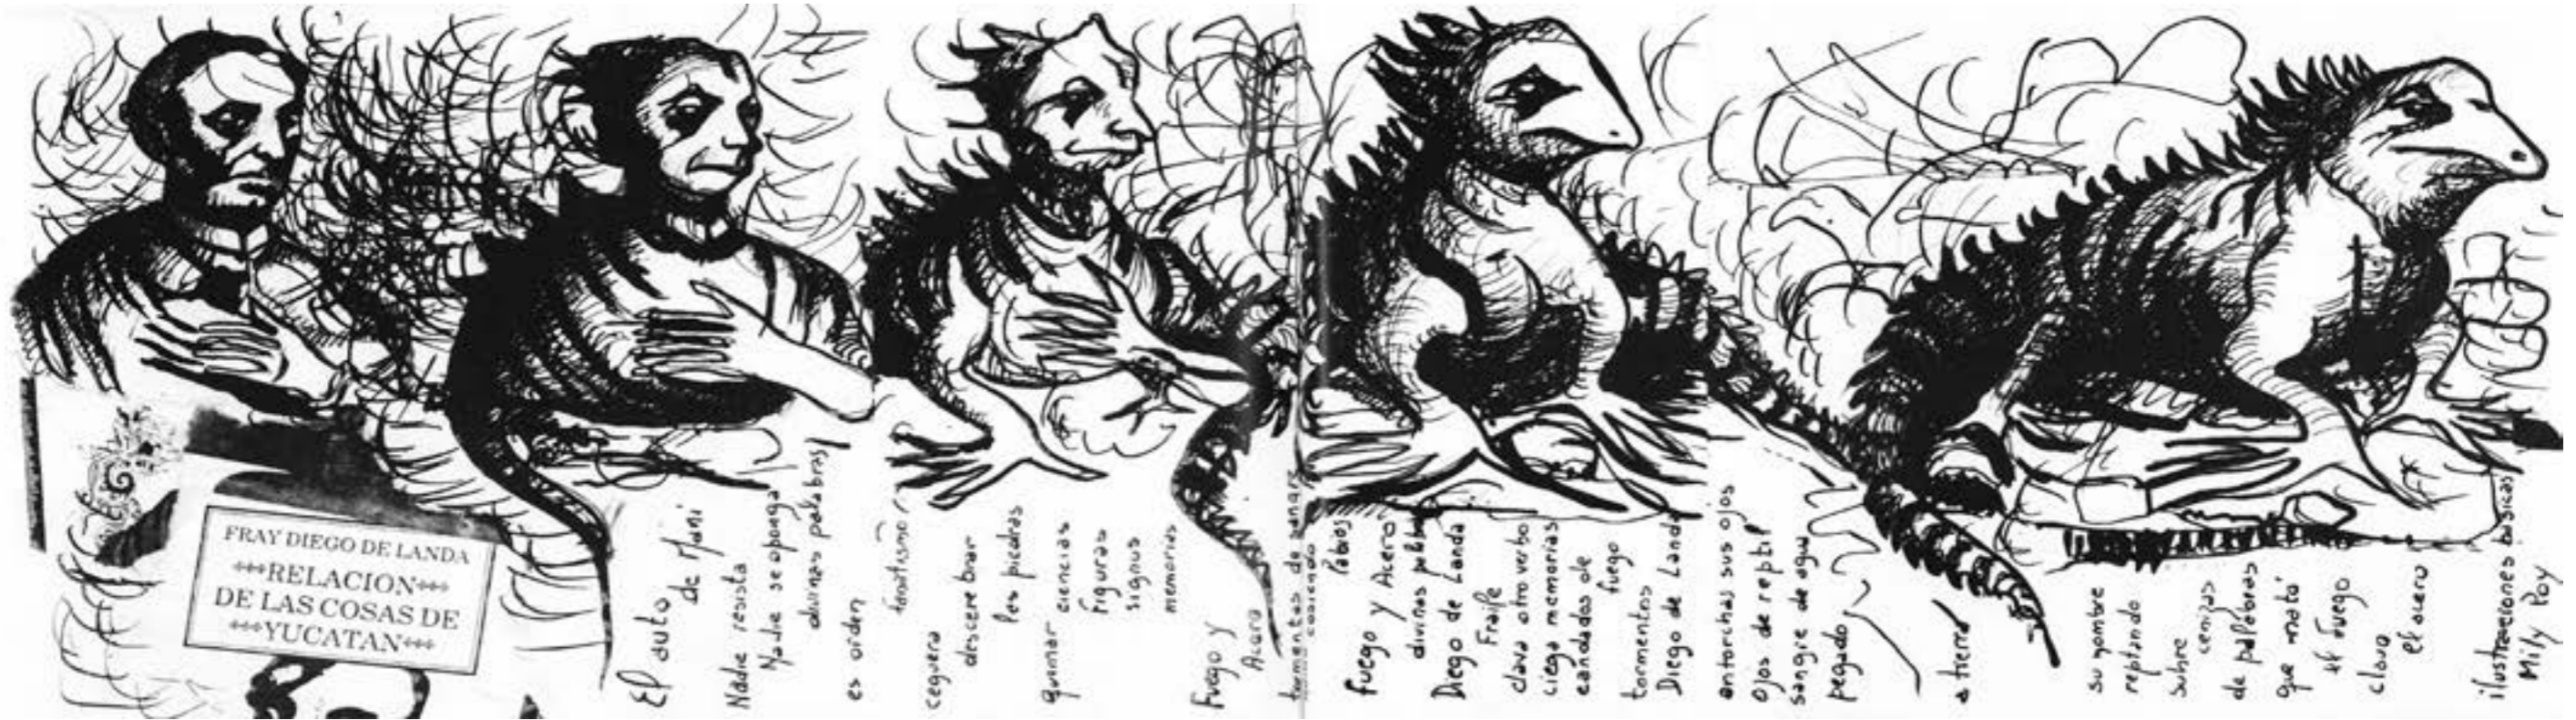 FRAY DIEGO DE LANDA
RELACION
DE LAS COSAS DE
YUCATAN
El auto
de Maní
Nadie resista
Nadie se oponga
divinas palabras
es orden
fanatismo
ceguera
descerebrar
les picaras
quemar
ciencias
figuras
signos
memorias
Fuego y
Acero
tormentas de sangre
cosiendo
labios
fuego y Acero
divinas palabras
Diego de Landa
Fraile
clava otro verbo
ciega memorias
candados de
fuego
tormentos
Diego de Landa
antorchas sus ojos
ojos de reptil
sangre de agua
pegado
a tierra
su nombre
reptando
sobre
cenizas
de palabras
que mató
el fuego
clavo
el acero
ilustraciones básicas
Mily Poy